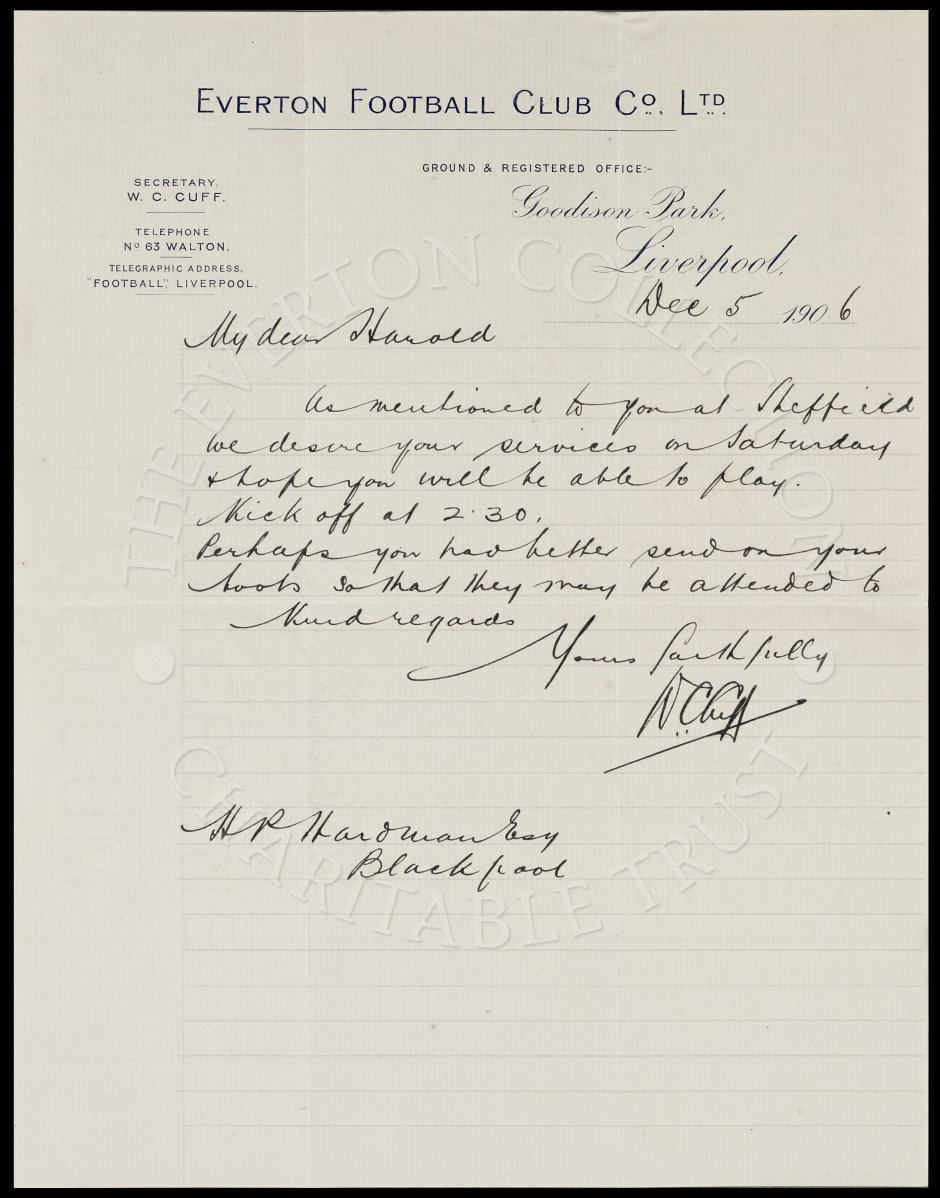 EVERTON FOOTBALL CLUB Co., LTD.
GROUND & REGISTERED OFFICE:-
SECRETARY.
W. C. CUFF.
TELEPHONE
No 63 WALTON.
TELEGRAPHIC ADDRESS,
"FOOTBALL", LIVERPOOL.
Goodison Park,
Liverpool,
Dec 5 1906
My dear Harold
As mentioned to you at Sheffield
we desire your services on Saturday
& hope you will be able to play.
Kick off at 2.30.
Perhaps you had better send on your
boots so that they may be attended to
Kind regards
Yours faithfully
W.C. Cuff
H P Hardman Esq
Blackpool
THE EVERTON COLLECTION
CHARITABLE TRUST